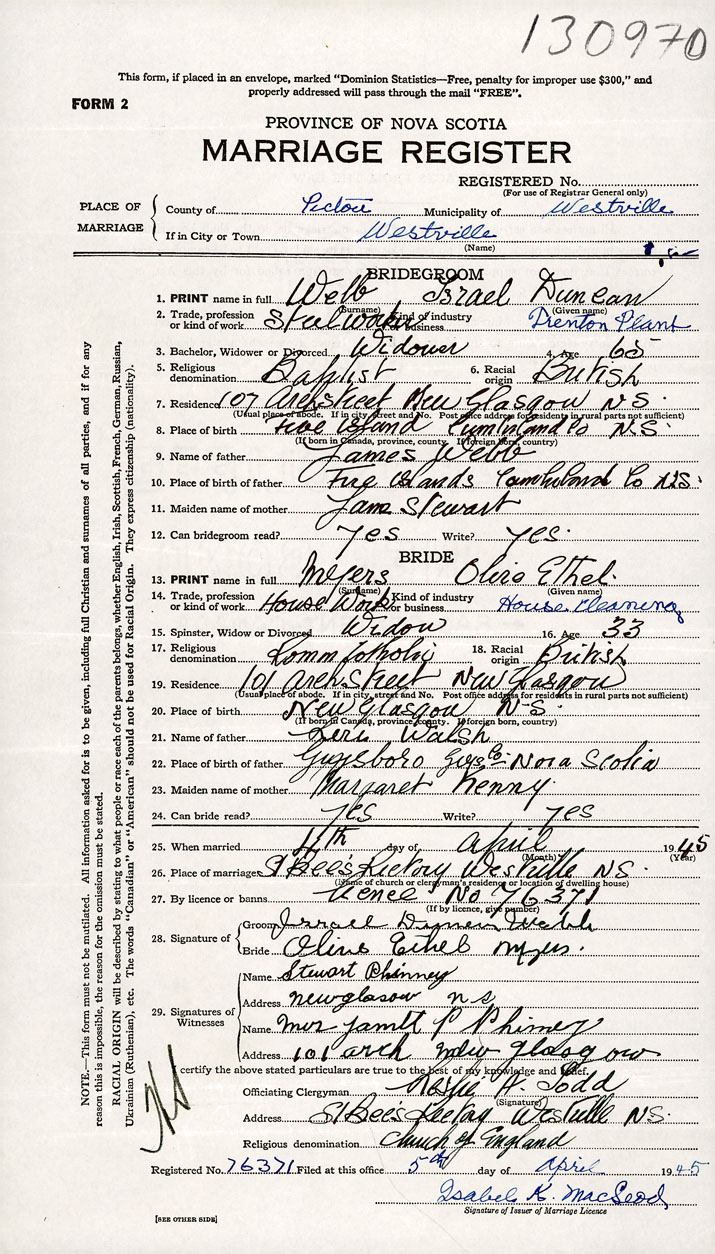 130970
This form, if placed in an envelope, marked "Dominion Statistics—Free, penalty for improper use $300," and
properly addressed will pass through the mail "FREE".
FORM 2
PROVINCE OF NOVA SCOTIA
MARRIAGE REGISTER
REGISTERED No.
(For use of Registrar General only)
PLACE OF MARRIAGE
County of Pictou Municipality of Westville
If in City or Town Westville
(Name)
BRIDEGROOM
1. PRINT name in full Webb Israel Duncan
(Surname) (Given name)
2. Trade, profession or kind of work Steelworker Kind of industry or business Trenton Plant
3. Bachelor, Widower or Divorced Widower 4. Age 65
5. Religious denomination Baptist 6. Racial origin British
7. Residence 107 Arch Street New Glasgow N S.
(Usual place of abode. If in city, street and No. Post office address for residents in rural parts not sufficient)
8. Place of birth Five Island Cumberland Co N.S.
(If born in Canada, province, county. If foreign born, country)
9. Name of father James Webb
10. Place of birth of father Five Islands Cumberland Co N.S.
11. Maiden name of mother Jane Stewart
12. Can bridegroom read? yes Write? yes.
BRIDE
13. PRINT name in full Myers Olive Ethel.
(Surname) (Given name)
14. Trade, profession or kind of work House Work Kind of industry or business House Cleaning
15. Spinster, Widow or Divorced Widow 16. Age 33
17. Religious denomination Romm Catholic 18. Racial origin British
19. Residence 101 Arch Street New Glasgow
(Usual place of abode. If in city, street and No. Post office address for residents in rural parts not sufficient)
20. Place of birth New Glasgow N-S
(If born in Canada, province, county. If foreign born, country)
21. Name of father Walsh
22. Place of birth of father Guysboro Guys Co. Nova Scotia
23. Maiden name of mother Margaret Kenny
24. Can bride read? yes Write? yes
25. When married 4th day of April 1945
(Month) (Year)
26. Place of marriage St Bee's Rectory Westville N.S.
(Name of church or clergyman's residence or location of dwelling house)
27. By licence or banns No 76371
(If by licence, give number)
28. Signature of
Groom Israel Duncan Webb
Bride Olive Ethel Myers.
29. Signatures of Witnesses
Name Stewart Phinney
Address newglasgow n s
Name Mrs P Phinney
Address 101 arch new glasgow
I certify the above stated particulars are true to the best of my knowledge and belief.
Officiating Clergyman A. Todd
(Signature)
Address St Bee's Rectory Westville N.S.
Religious denomination Church of England
Registered No. 76371 Filed at this office 5th day of April 1945
Isabel K. MacLeod
Signature of Issuer of Marriage Licence
[SEE OTHER SIDE]
NOTE.—This form must not be mutilated. All information asked for is to be given, including full Christian and surnames of all parties, and if for any
reason this is impossible, the reason for the omission must be stated.
RACIAL ORIGIN will be described by stating to what people or race each of the parents belongs, whether English, Irish, Scottish, French, German, Russian,
Ukrainian (Ruthenian), etc. The words "Canadian" or "American" should not be used for Racial Origin. They express citizenship (nationality).